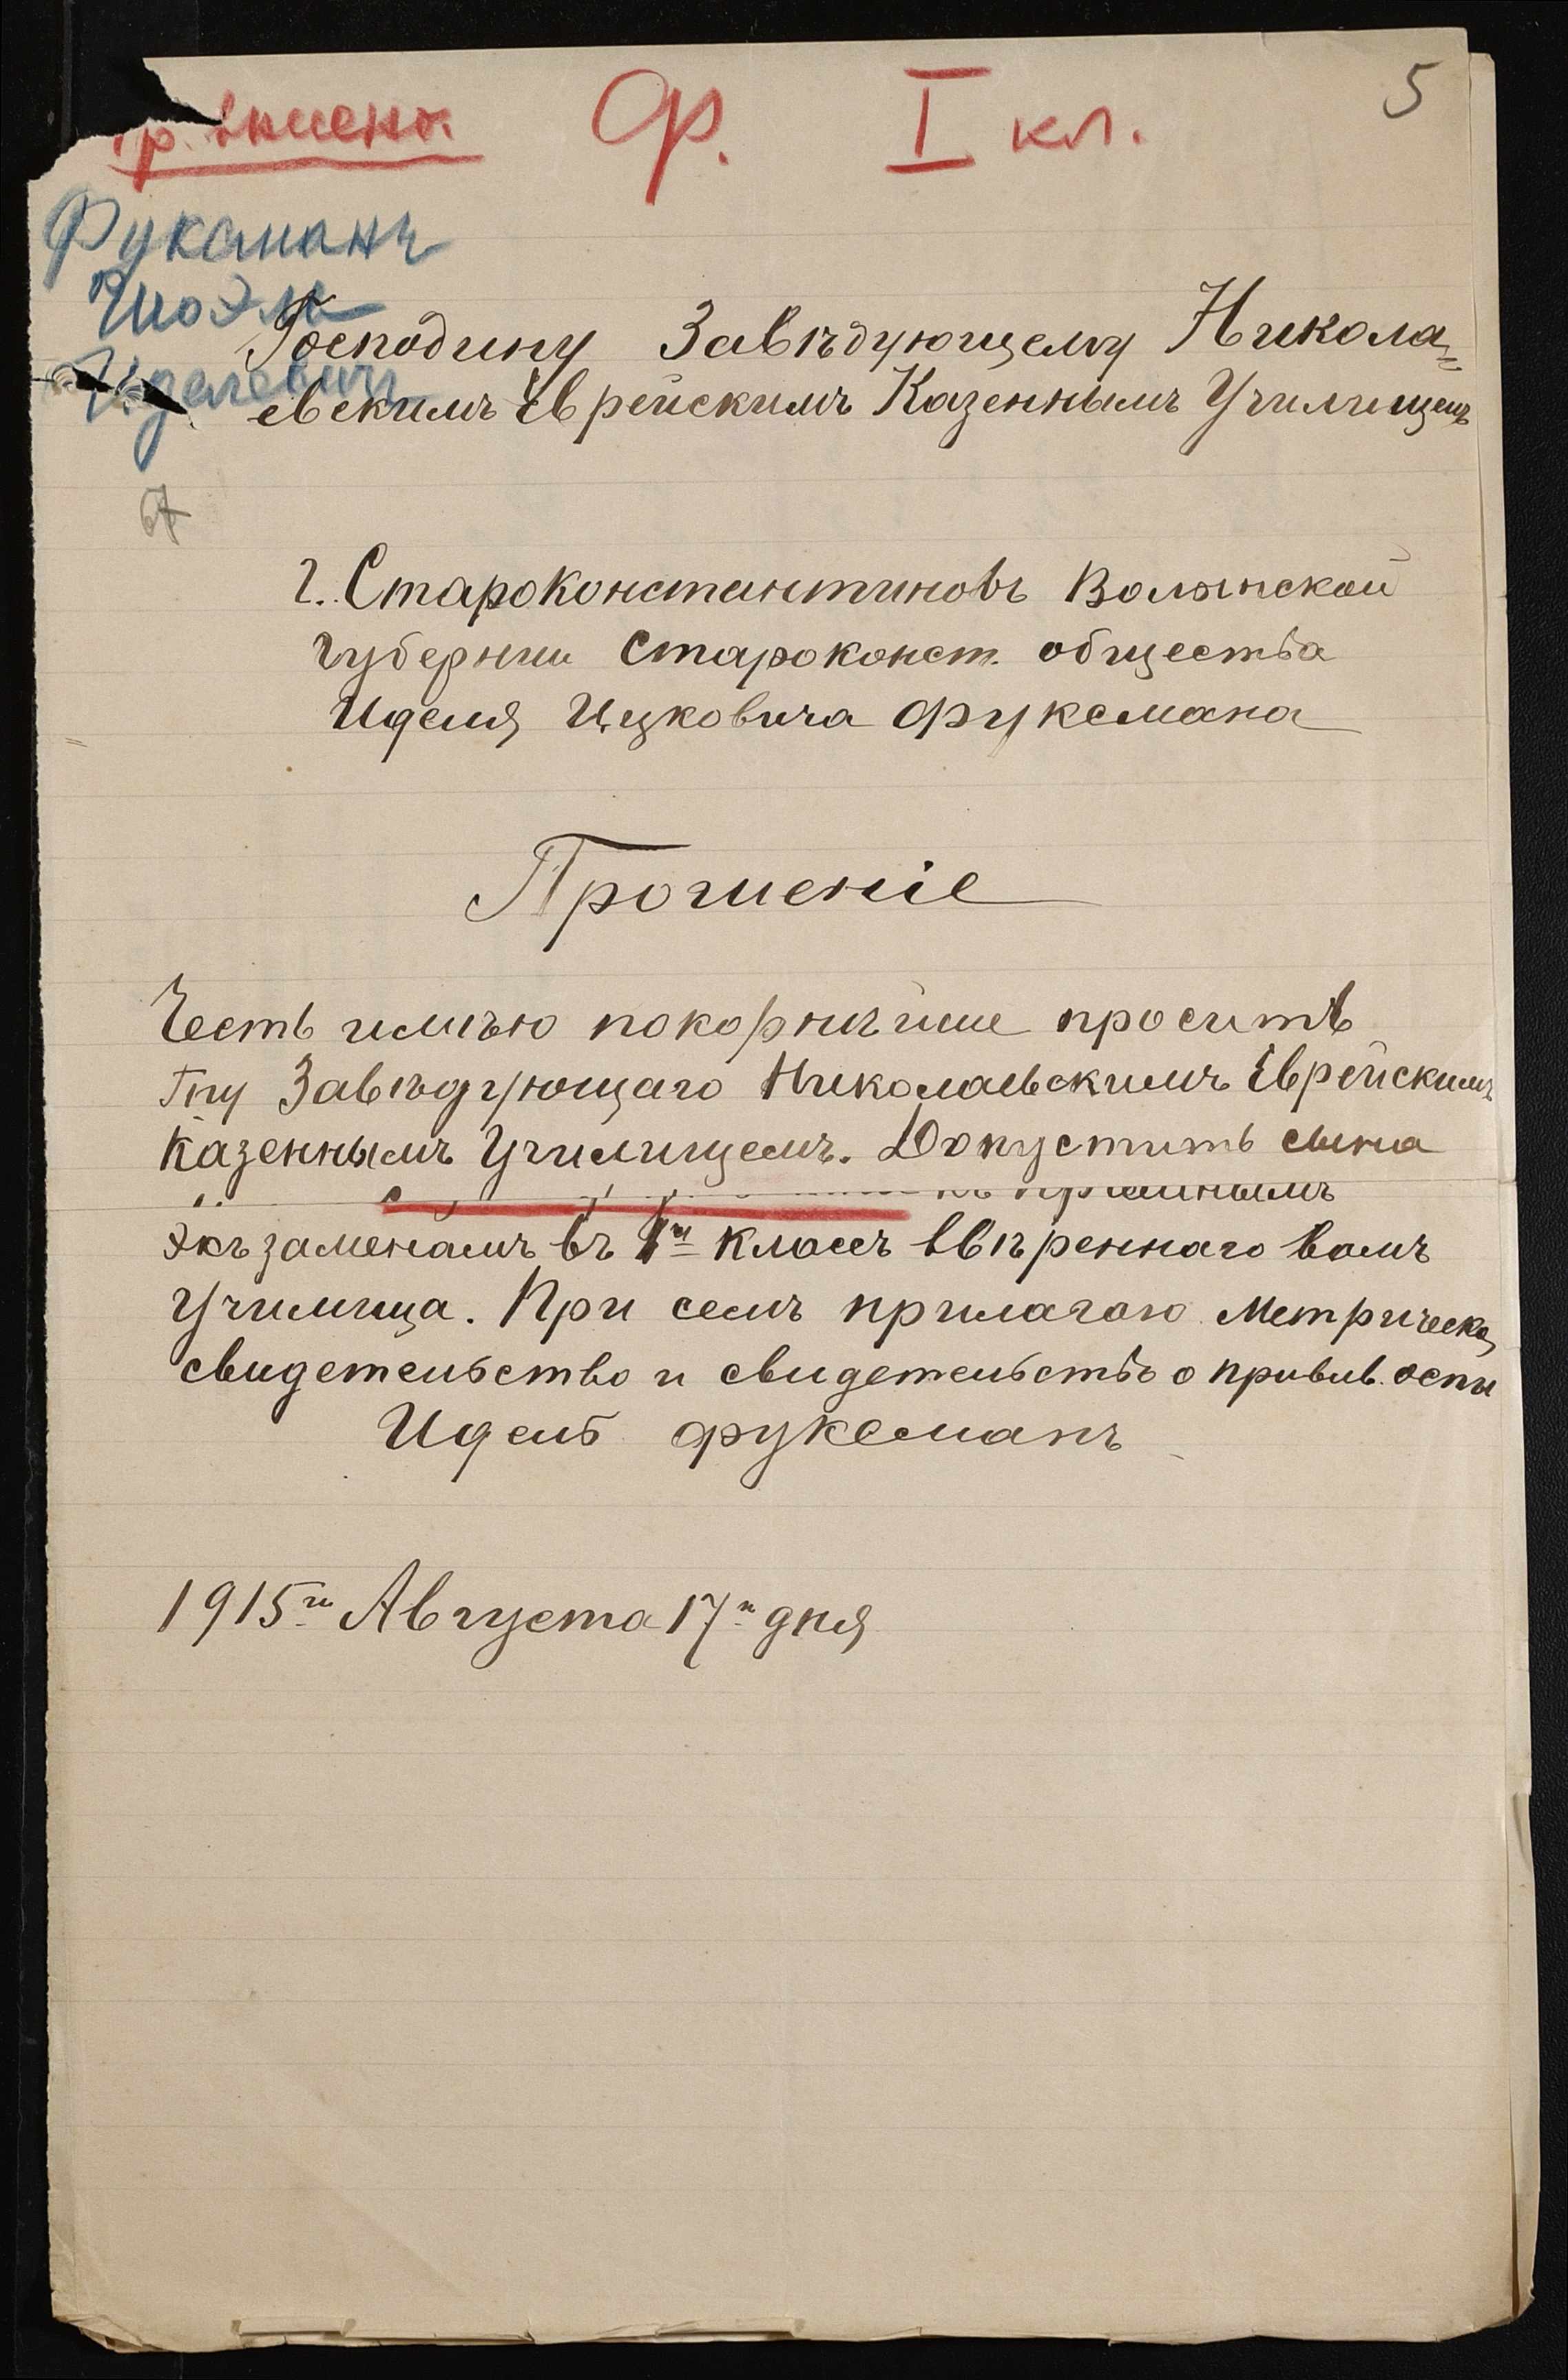 Ф. I кл.
5
Фуксманъ
Шоэль
Иделевичъ
67
Господину Завѣдующему Никола=
евскимъ Еврейскимъ Казеннымъ Училищемъ
г. Староконстантиновъ Волынской
губернии Староконст. общества
Иделя Ицковича Фуксмана
Прошеніе
Честь имѣю покорнѣйше просить
Гну Завѣдующаго Николаевскимъ Еврейскимъ
Казеннымъ Училищемъ. Допустить сына
экъзаменамъ въ 1й классъ ввѣреннаго вамъ
Училища. При семъ прилагаю Метрическо
свидетельство и свидетельство о привив. оспы
Идель Фуксманъ
1915го Августа 17го дня